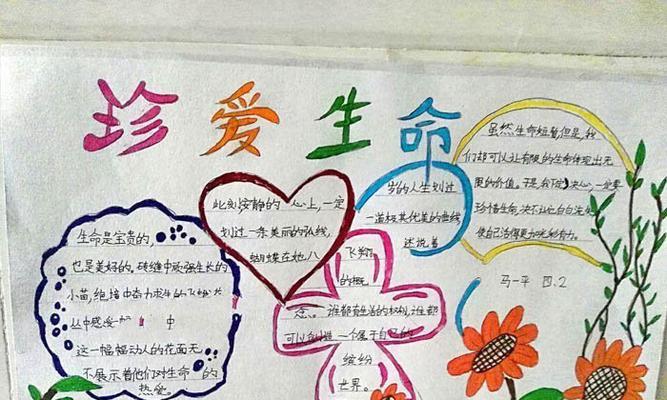 珍爱生命
生命是宝贵的,
也是美好的。砖缝中顽强生长的
小苗,绝境中奋力求生的飞蛾
丛中感受 中
这一幅幅动人的花面无
不展示着他们对生命的
热爱。
此刻安静的心上,一定
划过一条美丽的弧线,
蝴蝶在她八
岁的人生划过
一道极其优美的曲线,
述说着
飞翔
的概
念。谁都有生活的权利,谁都
可以创造一个属于自己的
缤纷
世界。
虽然生命短暂但是,我
们却可以让有限的生命体现出无
限的价值。于是,我下决心,一定要
珍惜生命,决不让它白白流
使自己活得更加光彩有力。
马一平 四.2